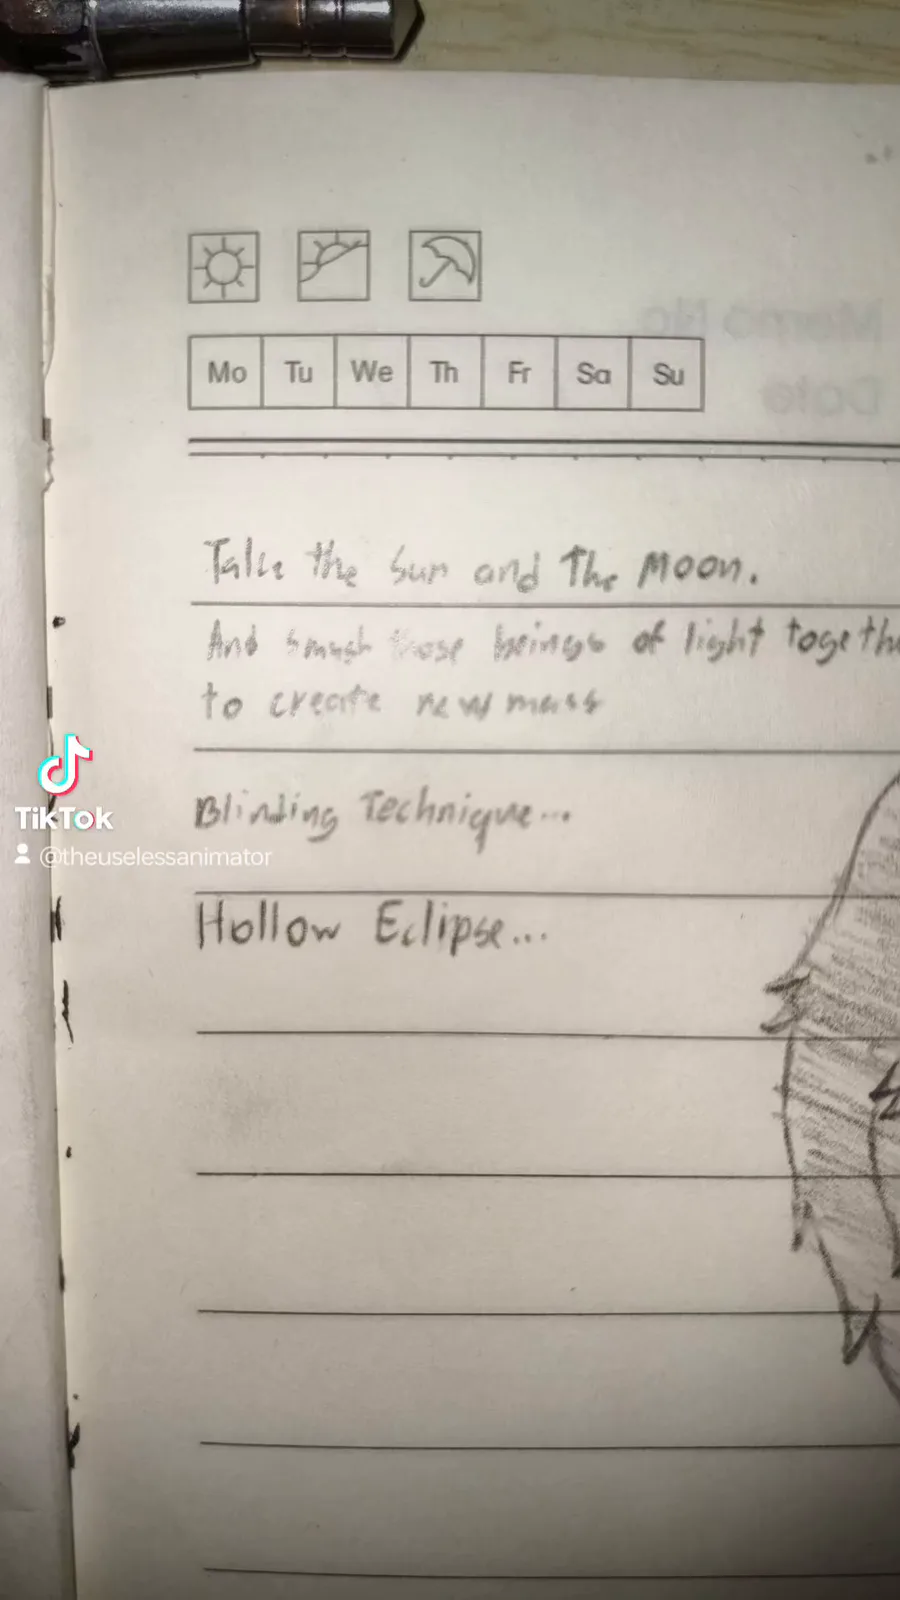 Mo Tu We Th Fr Sa Su
Memo No.
Date
Take the Sun and The Moon.
And smash those beings of light togethe
to create new mass
Blinding Technique...
Hollow Eclipse...
TikTok
@theuselessanimator